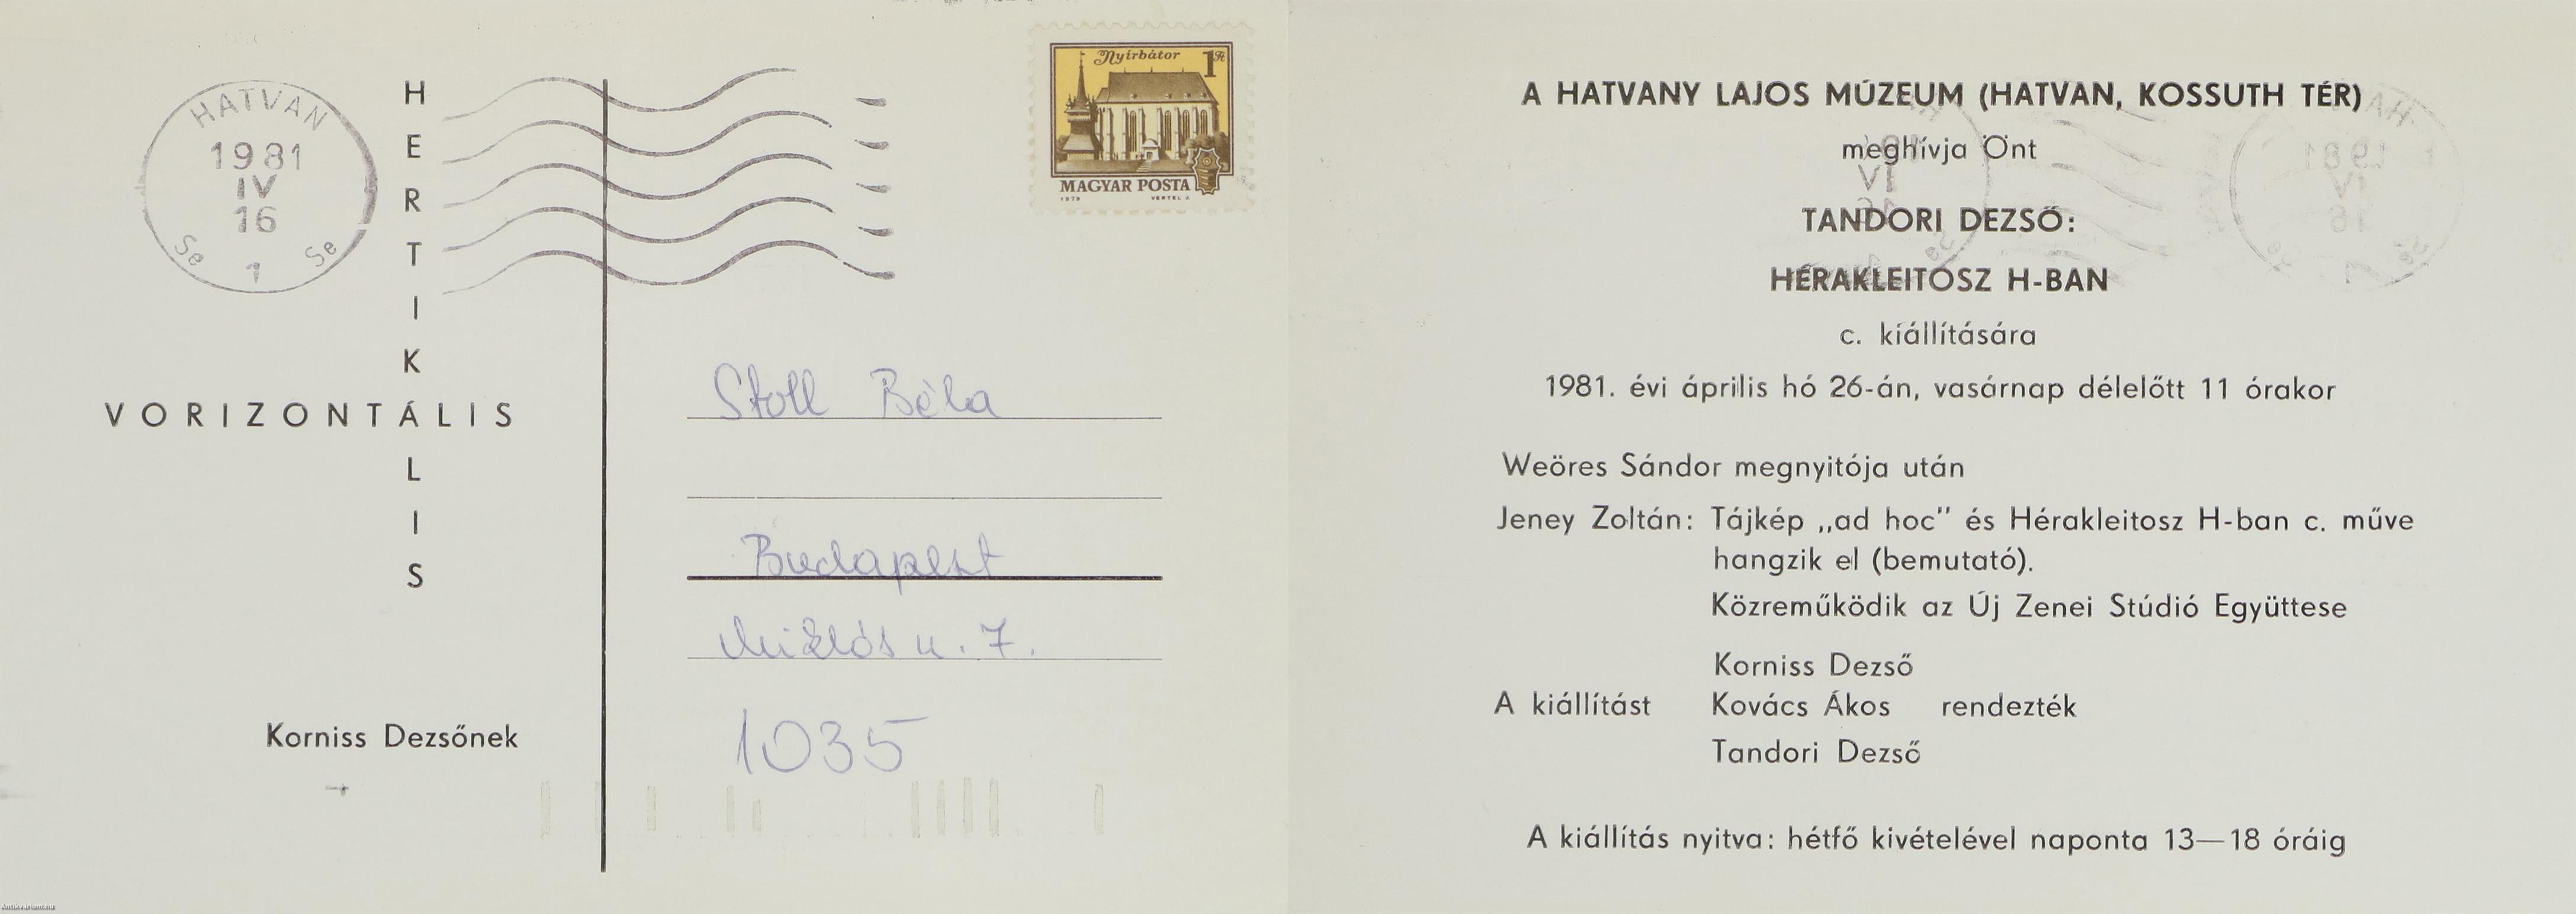 HATVAN
1981
IV
16
Se 1 Se
HERTIKÁLIS
VORIZONTÁLIS
Korniss Dezsőnek
Nyírbátor 1 Ft
MAGYAR POSTA
1979 VERTEL J.
Stoll Béla
Budapest
Miklós u. 7.
1035
A HATVANY LAJOS MÚZEUM (HATVAN, KOSSUTH TÉR)
meghívja Önt
TANDORI DEZSŐ:
HÉRAKLEITOSZ H-BAN
c. kiállítására
1981. évi április hó 26-án, vasárnap délelőtt 11 órakor
Weöres Sándor megnyitója után
Jeney Zoltán: Tájkép „ad hoc" és Hérakleitosz H-ban c. műve
hangzik el (bemutató).
Közreműködik az Új Zenei Stúdió Együttese
Korniss Dezső
A kiállítást Kovács Ákos rendezték
Tandori Dezső
A kiállítás nyitva: hétfő kivételével naponta 13—18 óráig
Antikvarium.hu